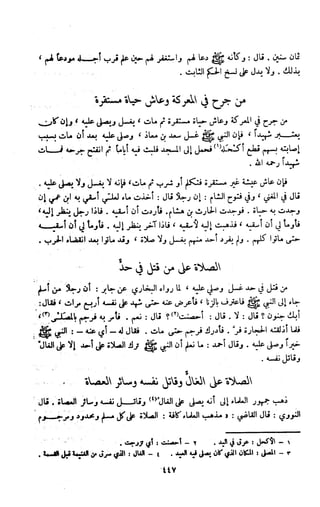 ثمان سنين . قال : وكأنه ﷺ دعا لهم واستغفر لهم حين علم قرب أجله مودعاً لهم ،
بذلك . ولا يدل على نسخ الحكم الثابت .
من جرح في المعركة وعاش حياة مستقرة
من جرح في المعركة وعاش حياة مستقرة ثم مات ، يغسل ويصلى عليه ، وإن كان
يعتبر شهيداً ، فإن النبي ﷺ غسل سعد بن معاذ ، وصلى عليه بعد أن مات بسبب
إصابته بسهم قطع أكحله (١) فحمل إلى المسجد فلبث فيه أياماً ثم انفتح جرحه فمات
شهيداً رحمه الله .
فإن عاش عيشة غير مستقرة فتكلم أو شرب ثم مات ، فإنه لا يغسل ولا يصلى عليه .
قال في المغني ، وفي فتوح الشام : إن رجلاً قال : أخذت ماء لعلي أسقي به ابن عمي إن
وجدت به حياة . فوجدت الحارث بن هشام . فأردت أن أسقيه . فإذا رجل ينظر إليه ،
فأومأ لي أن أسقيه ، فذهبت إليه لأسقيه ، فإذا آخر ينظر إليه . فأومأ لي أن أسقيه
حتى ماتوا كلهم . ولم يفرد أحد منهم بغسل ولا صلاة ، وقد ماتوا بعد انقضاء الحرب .
الصلاة على من قتل في حدّ
من قتل في حد غسل وصلي عليه ، لما رواه البخاري عن جابر : أن رجلاً من أسلم
جاء إلى النبي ﷺ فاعترف بالزنا ، فأعرض عنه حتى شهد على نفسه أربع مرات ، فقال :
أبك جنون ؟ قال : لا . قال : أحصنت (٢) ؟ قال : نعم . فأمر به فرجم بالمصلى (٣) ،
فلما أذلقته الحجارة فرّ . فأدرك فرجم حتى مات . فقال له – أي عنه – : النبي ﷺ
خيراً وصلى عليه . وقال أحمد : ما نعلم أن النبي ﷺ ترك الصلاة على أحد إلا على الغال
وقاتل نفسه .
الصلاة على الغالّ وقاتل نفسه وسائر العصاة
ذهب جمهور العلماء إلى أنه يصلى على الغال (٤) وقاتل نفسه وسائر العصاة . قال
النووي : قال القاضي : « مذهب العلماء كافة : الصلاة على كل مسلم ومحدود ومرجوم
١ – الأكحل : عرق في اليد . ٢ – أحصنت : أي تزوجت .
٣ – المصلى : المكان الذي كان يصلى فيه العيد . ٤ – الغال : الذي سرق من الغنيمة قبل القسمة .
٤٤٧